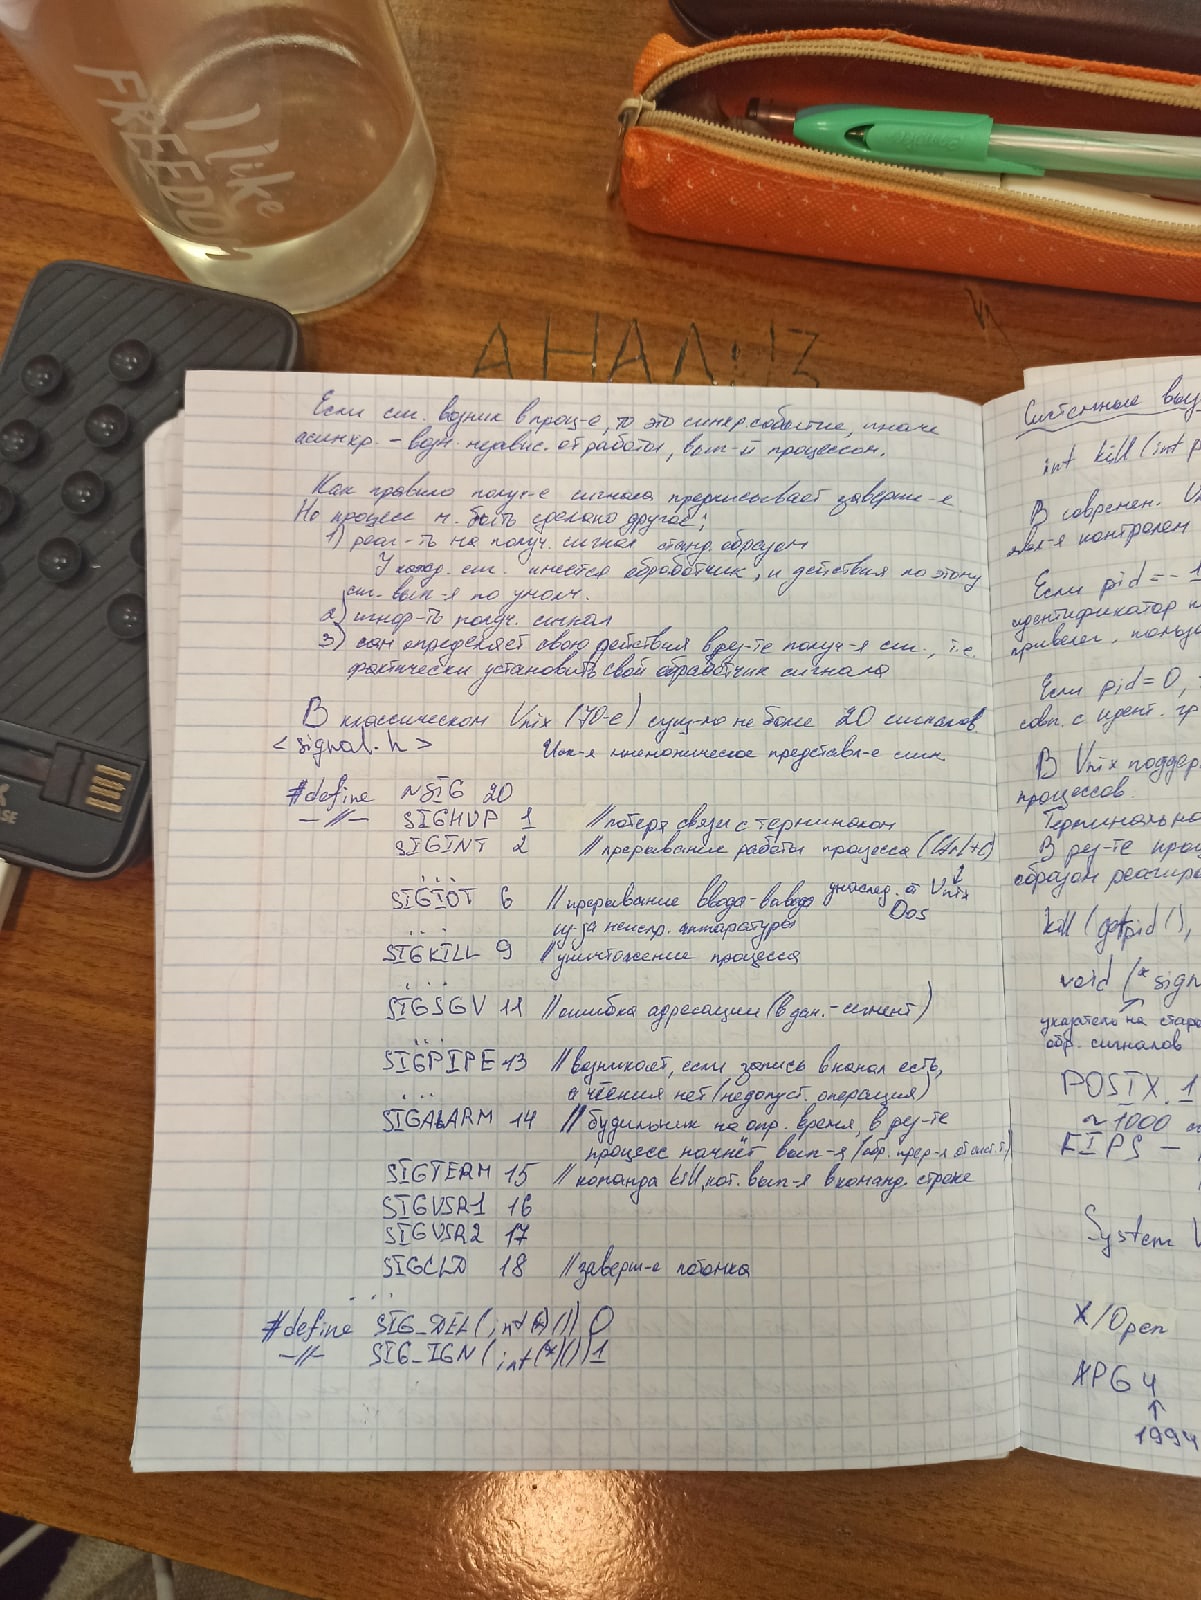 I like
FREEDOM
АНАЛиз
Если сиг. возник в проц-е, то это синхр. событие, иначе
асинхр. – возн. независ. от работы, вып-й процессом.
Как правило получ-е сигнала предписывает заверш-е
Но процесс м. быть сделано другое:
1) реаг-ть на получ. сигнал станд. образом
У кажд. сиг. имеется обработчик, и действия по этому
сиг. вып-я по умолч.
2) игнор-ть получ. сигнал
3) сам определяет свою действия в рез-те получ-я сиг., т.е.
фактически установить свой обработчик сигнала
В классическом Unix (70-е) сущ-ло не более 20 сигналов.
<signal.h> Исп-я мнемоническое представл-е сигн.
#define NSIG 20
–//– SIGHUP 1 //потеря связи с терминалом
SIGINT 2 //прерывание работы процесса (Ctrl+C)
...
SIGIOT 6 //прерывание ввода-вывода унаслед. от Unix
из-за неиспр. аппаратуры Dos
...
SIGKILL 9 //уничтожение процесса
...
SIGSGV 11 //ошибка адресации (в дан.-сегмент)
...
SIGPIPE 13 //возникает, если запись в канал есть,
а чтения нет (недопуст. операция)
...
SIGALARM 14 //будильник на опр. время, в рез-те
процесс начнёт вып-я
SIGTERM 15 //команда kill, кот. вып-я в команд. строке
SIGUSR1 16
SIGUSR2 17
SIGCLD 18 //заверш-е потомка
...
#define SIG_DEL (int(*)()) 0
–//– SIG_IGN (int(*)()) 1
Системные выз
int kill (int p
В соврем. Un
явл-я контролем
Если pid = -1
идентификатор п
привелег. польз
Если pid = 0,
совп. с идент. гр
В Unix поддер
процессов.
Терминально
В рез-те проц
образом реагир
kill (getpid(),
void (*sign
указатель на стар
обр. сигналов
POSIX.1
~1000
FIPS –
System V
X/Open
XPG4
↑
1994